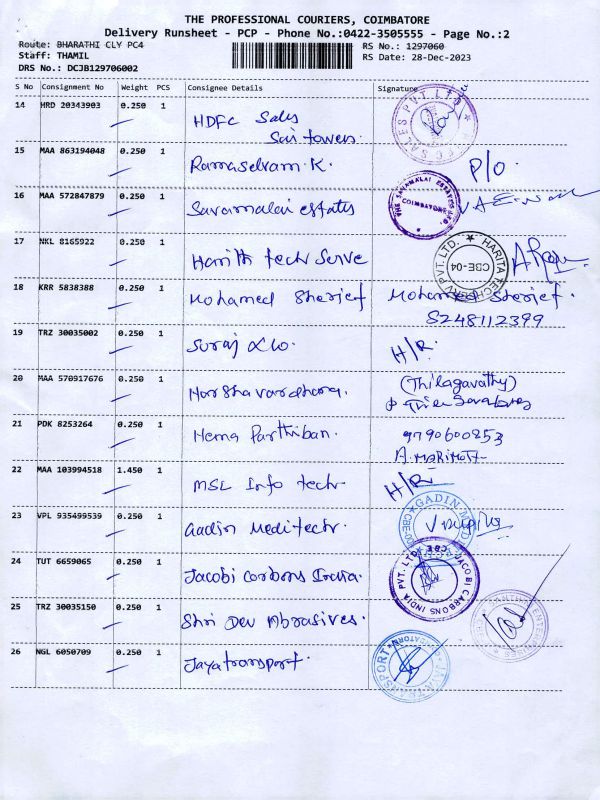 THE PROFESSIONAL COURIERS, COIMBATORE
Delivery Runsheet - PCP - Phone No.:0422-3505555 - Page No.:2
Route: BHARATHI CLY PC4
RS No.: 1297060
Staff: THAMIL
RS Date: 28-Dec-2023
DRS No.: DCJB129706002
S No Consignment No Weight PCS Consignee Details Signature
14 HRD 20343903 0.250 1 HDFC Sales
Sai towers.
15 MAA 863194048 0.250 1 Ramaselvam.K. P/O.
16 MAA 572847879 0.250 1 Savamalai estates
THE SAVAMALAI ESTATES COIMBATORE
17 NKL 8165922 0.250 1 Harith tech Serve
HARITA TECHSERV PVT. LTD. CBE-04
18 KRR 5838388 0.250 1 Mohamed Sherief Mohamed Sherief.
8248112399
19 TRZ 30035002 0.250 1 Suraj &co. H/R.
20 MAA 570917676 0.250 1 Harshavardhana. (Thilagavathy)
21 PDK 8253264 0.250 1 Hema Parthiban. 9790600853
22 MAA 103994518 1.450 1 MSL Info tech. H/R
23 VPL 935499539 0.250 1 Gadin Meditech.
GADIN
24 TUT 6659065 0.250 1 Jacobi Carbons India.
JACOBI CARBONS INDIA PVT. LTD. CBE
25 TRZ 30035150 0.250 1 Shri Dev Abrasives.
26 NGL 6050709 0.250 1 Jayatransport.